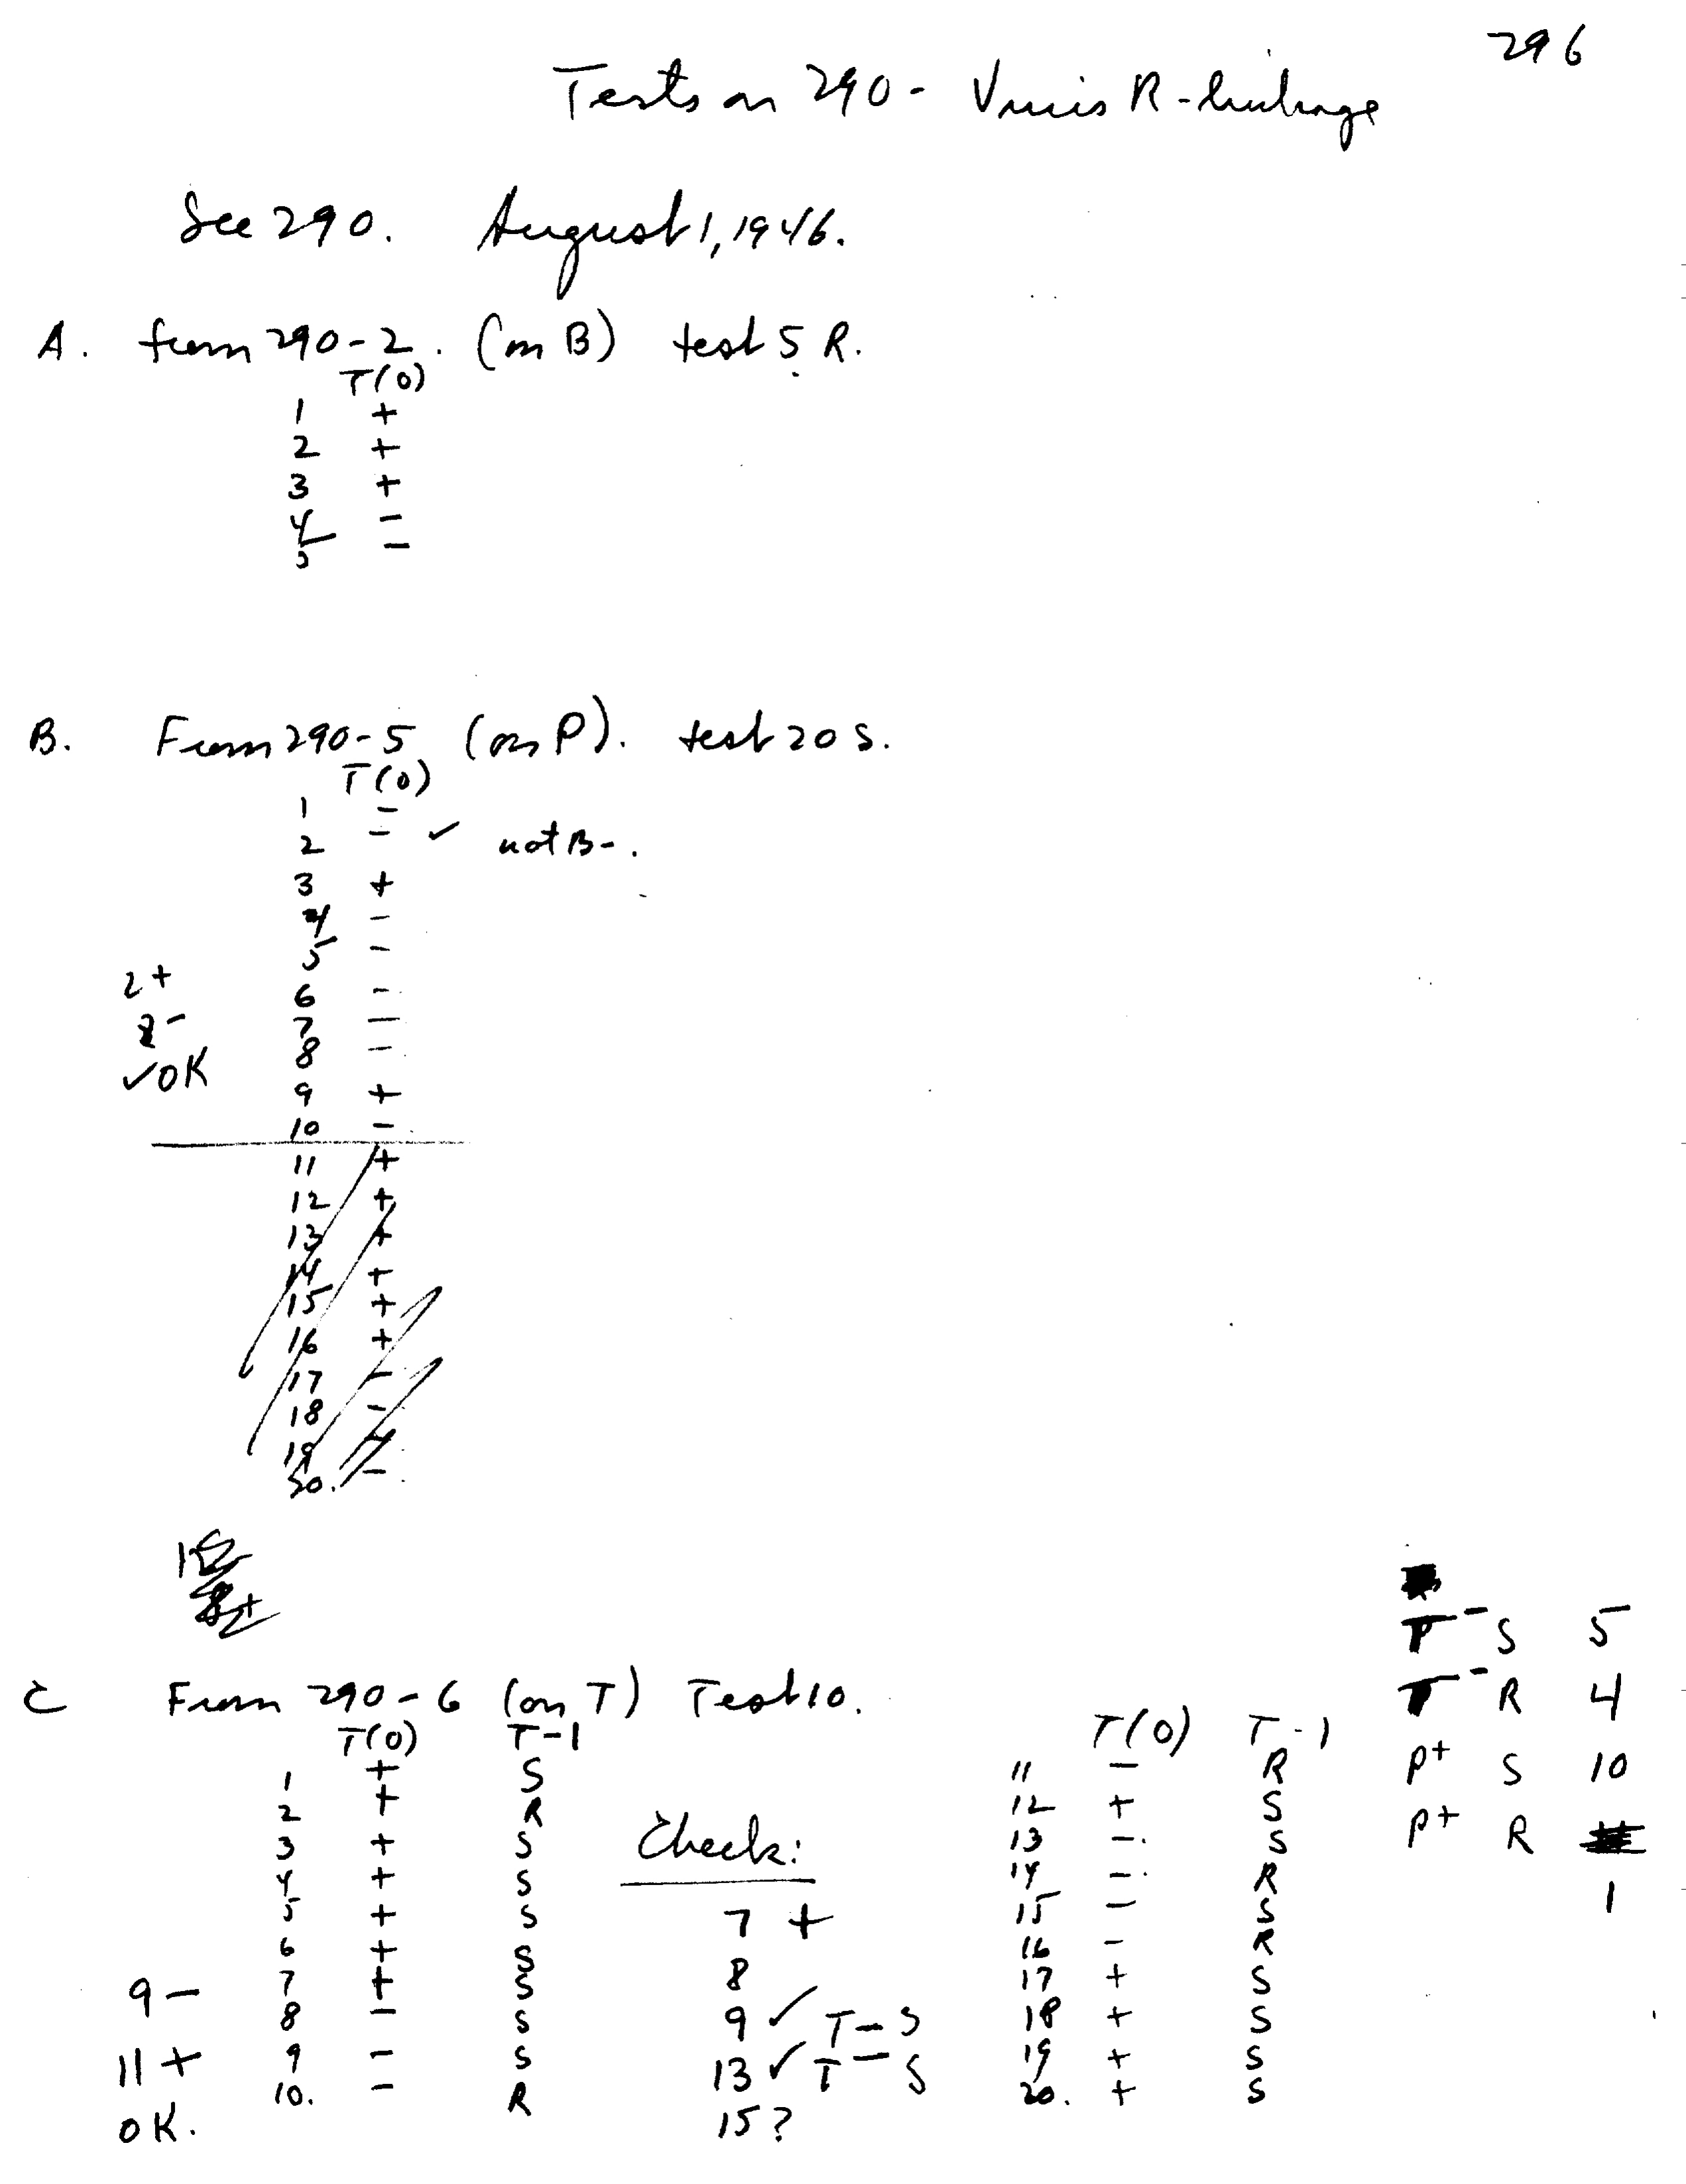 296
Tests on 290 - Virus R-linkage
See 290. August 1, 1946.
A. from 290-2. (on B) test 5 R.
T(0)
1 +
2 +
3 +
4 -
5 -
B. From 290-5 (on P). test 20 S.
T(0)
1 -
2 - ✓ not B-.
3 +
4 -
5 -
2+
6 -
7 -
8 -
✓OK
9 +
10 -
11 +
12 +
13 +
14 +
15 +
16 +
17 -
18 -
19 -
20. -
C From 290-6 (on T) Test 10.
T(0) T-1
1 + S
2 + R
3 + S
4 + S
5 + S
6 + S
7 + S
8 - S
9 - S
10. - R
9 -
11 +
OK.
Check:
7 +
8
9 ✓ T- S
13 ✓ T- S
15?
T(0) T-1
11 - R
12 + S
13 - S
14 - R
15 - S
16 - R
17 + S
18 + S
19 + S
20. + S
- S 5
- R 4
P+ S 10
P+ R
1